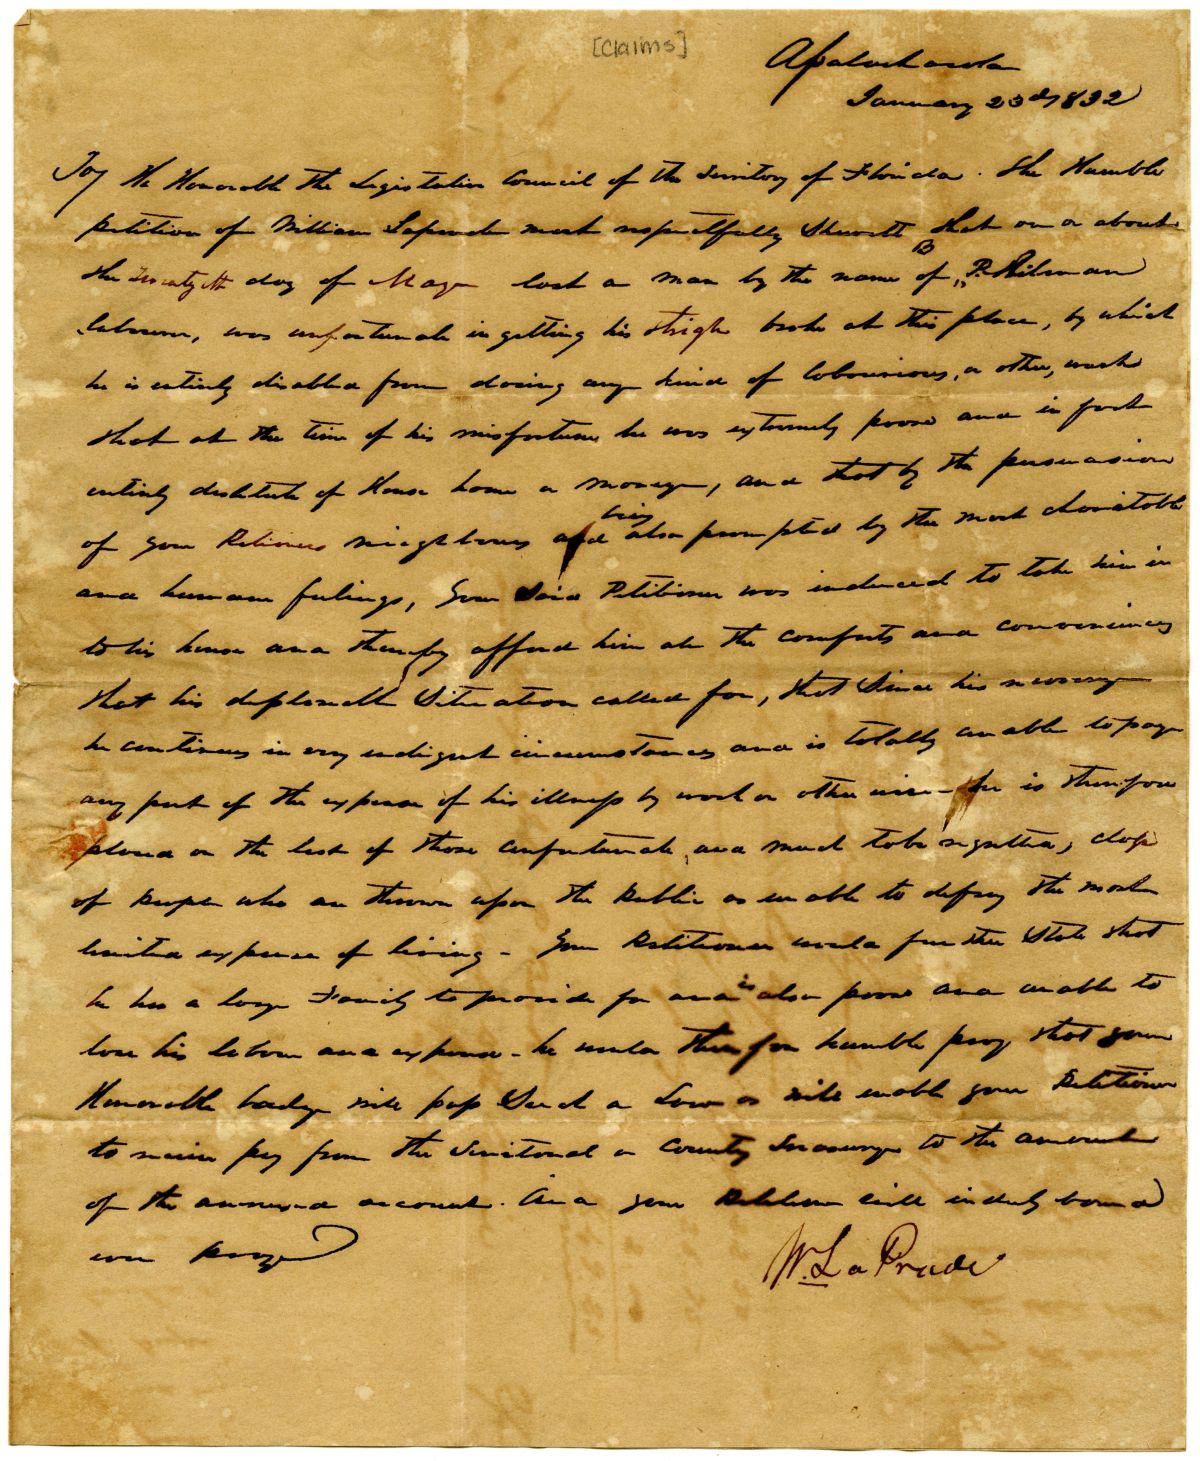 [Claims]
Apalachacola
January 23d 1832
To the Honorable the Legislative Council of the Territory of Florida. The Humble
petition of William Laprade most respectfully Sheweth that on or about
the day of May last a man by the name of P. B. Stilman
labourer, was unfortunate in getting his thigh broke at this place, by which
he is entirely disabled from doing any kind of labourious, or other, work
that at the time of his misfortune he was extremely poore and in fact
entirely destitute of House home or money, and that by the persuasion
of your Petioners neighbours and being also prompted by the most charitable
and humane feelings, your Said Petitioner was induced to take him in
to his house and thereby afford him all the comforts and conveniences
that his deplorable Situation called for, that Since his recovery
he continues in very indigent circumstances and is totally unable to pay
any part of the expense of his illness by work or other wise - he is therefore
placed on the list of those unfortunate, and much to be regretted, class
of People who are thrown upon the Public as unable to defray the most
limited expense of living - Your Petitioner would further State that
he has a large Family to provide for and is also poore and unable to
lose his labour and expense - he would therefore humble pray that your
Honorable body will pass Such a Law as will enable your Petitioner
to receive pay from the Territorial or County Treasury to the amount
of the annexed account. And your Petitioner will in duty bound
ever pray
Wm. LaPrade